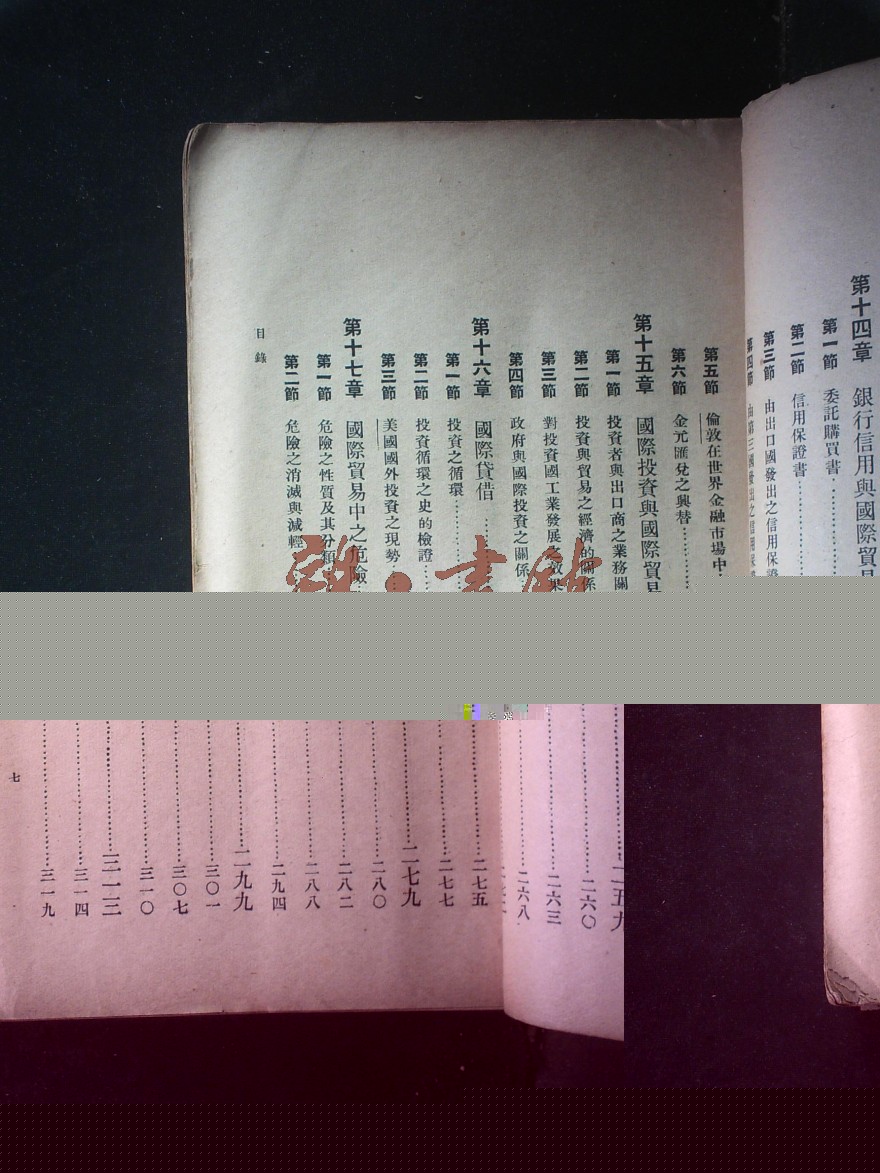 第十四章 銀行信用與國際貿易
第一節 委託購買書
第二節 信用保證書
第三節 由出口國發出之信用保證
第四節 由第三國發出之信用保
第五節 倫敦在世界金融市場中
第六節 金元匯兌之興替
第十五章 國際投資與國際貿易
第一節 投資者與出口商之業務關
第二節 投資與貿易之經濟的關係
第三節 對投資國工業發展之效果
第四節 政府與國際投資之關係
第十六章 國際貸借
第一節 投資之循環
第二節 投資循環之史的檢證
第三節 美國國外投資之現勢
第十七章 國際貿易中之危險
第一節 危險之性質及其分類
第二節 危險之消滅與減輕
目錄
二五九
二六〇
二六三
二六八
二七五
二七七
二七九
二八〇
二八二
二八八
二九四
二九九
三〇一
三〇七
三一〇
三一三
三一四
三一九
七